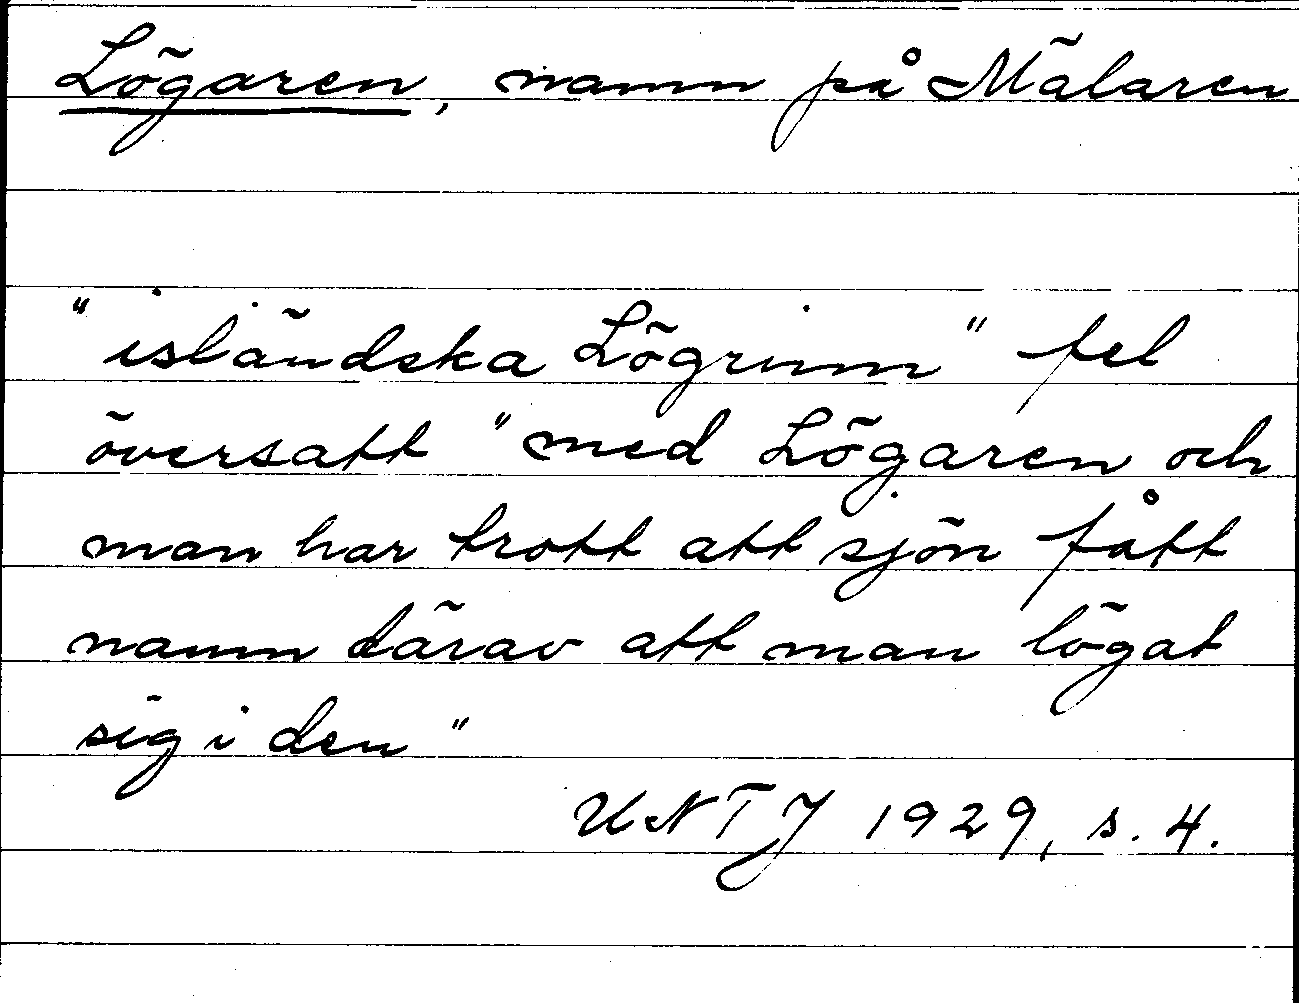 Lögaren, namn på Mälaren
"isländska Lögrinn" fel
översatt "med Lögaren och
man har trott att sjön fått
namn därav att man lögat
sig i den"
UNTJ 1929, s. 4.